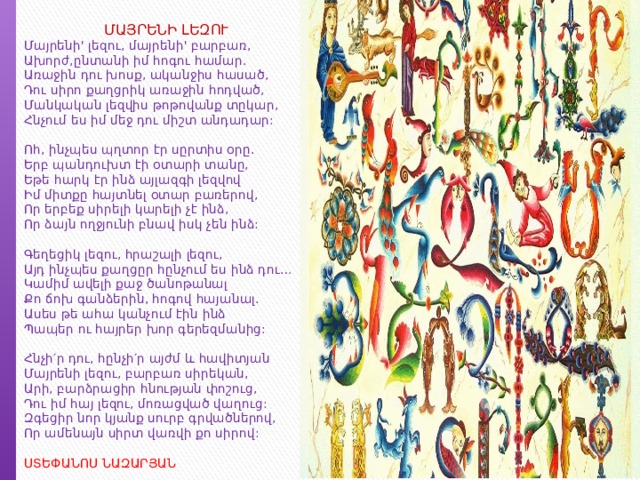 ՄԱՅՐԵՆԻ ԼԵԶՈՒ
Մայրենի՛ լեզու, մայրենի՛ բարբառ,
Ախորժ,ընտանի իմ հոգու համար.
Առաջին դու խոսք, ականջիս հասած,
Դու սիրո քաղցրիկ առաջին հոդված,
Մանկական լեզվիս թոթովանք տըկար,
Հնչում ես իմ մեջ դու միշտ անդադար:
Ոհ, ինչպես պղտոր էր սըրտիս օրը.
Երբ պանդուխտ էի օտարի տանը,
Եթե հարկ էր ինձ այլազգի լեզվով
Իմ միտքը հայտնել օտար բառերով,
Որ երբեք սիրելի կարելի չէ ինձ,
Որ ձայն ողջյունի բնավ իսկ չեն ինձ:
Գեղեցիկ լեզու, հրաշալի լեզու,
Այդ ինչպես քաղցըր հընչում ես ինձ դու...
Կամիմ ավելի քաջ ծանոթանալ
Քո ճոխ գանձերին, հոգով հայանալ.
Ասես թե ահա կանչում էին ինձ
Պապեր ու հայրեր խոր գերեզմանից:
Հնչի՛ր դու, հընչի՛ր այժմ և հավիտյան
Մայրենի լեզու, բարբառ սիրեկան,
Արի, բարձրացիր հնության փոշուց,
Դու իմ հայ լեզու, մոռացված վաղուց:
Զգեցիր նոր կյանք սուրբ գրվածներով,
Որ ամենայն սիրտ վառվի քո սիրով:
ՍՏԵՓԱՆՈՍ ՆԱԶԱՐՅԱՆ